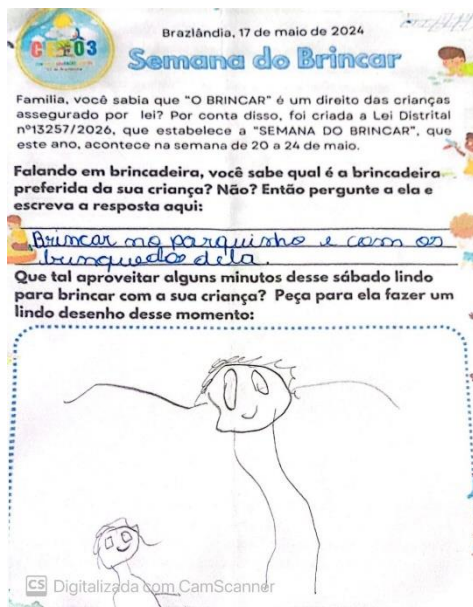 Brazlândia, 17 de maio de 2024
Semana do Brincar
Família, você sabia que "O BRINCAR" é um direito das crianças
assegurado por lei? Por conta disso, foi criada a Lei Distrital
nº13257/2026, que estabelece a "SEMANA DO BRINCAR", que
este ano, acontece na semana de 20 a 24 de maio.
Falando em brincadeira, você sabe qual é a brincadeira
preferida da sua criança? Não? Então pergunte a ela e
escreva a resposta aqui:
Brincar no parquinho e com os
brinquedos dela.
Que tal aproveitar alguns minutos desse sábado lindo
para brincar com a sua criança? Peça para ela fazer um
lindo desenho desse momento:
CS Digitalizada com CamScanner